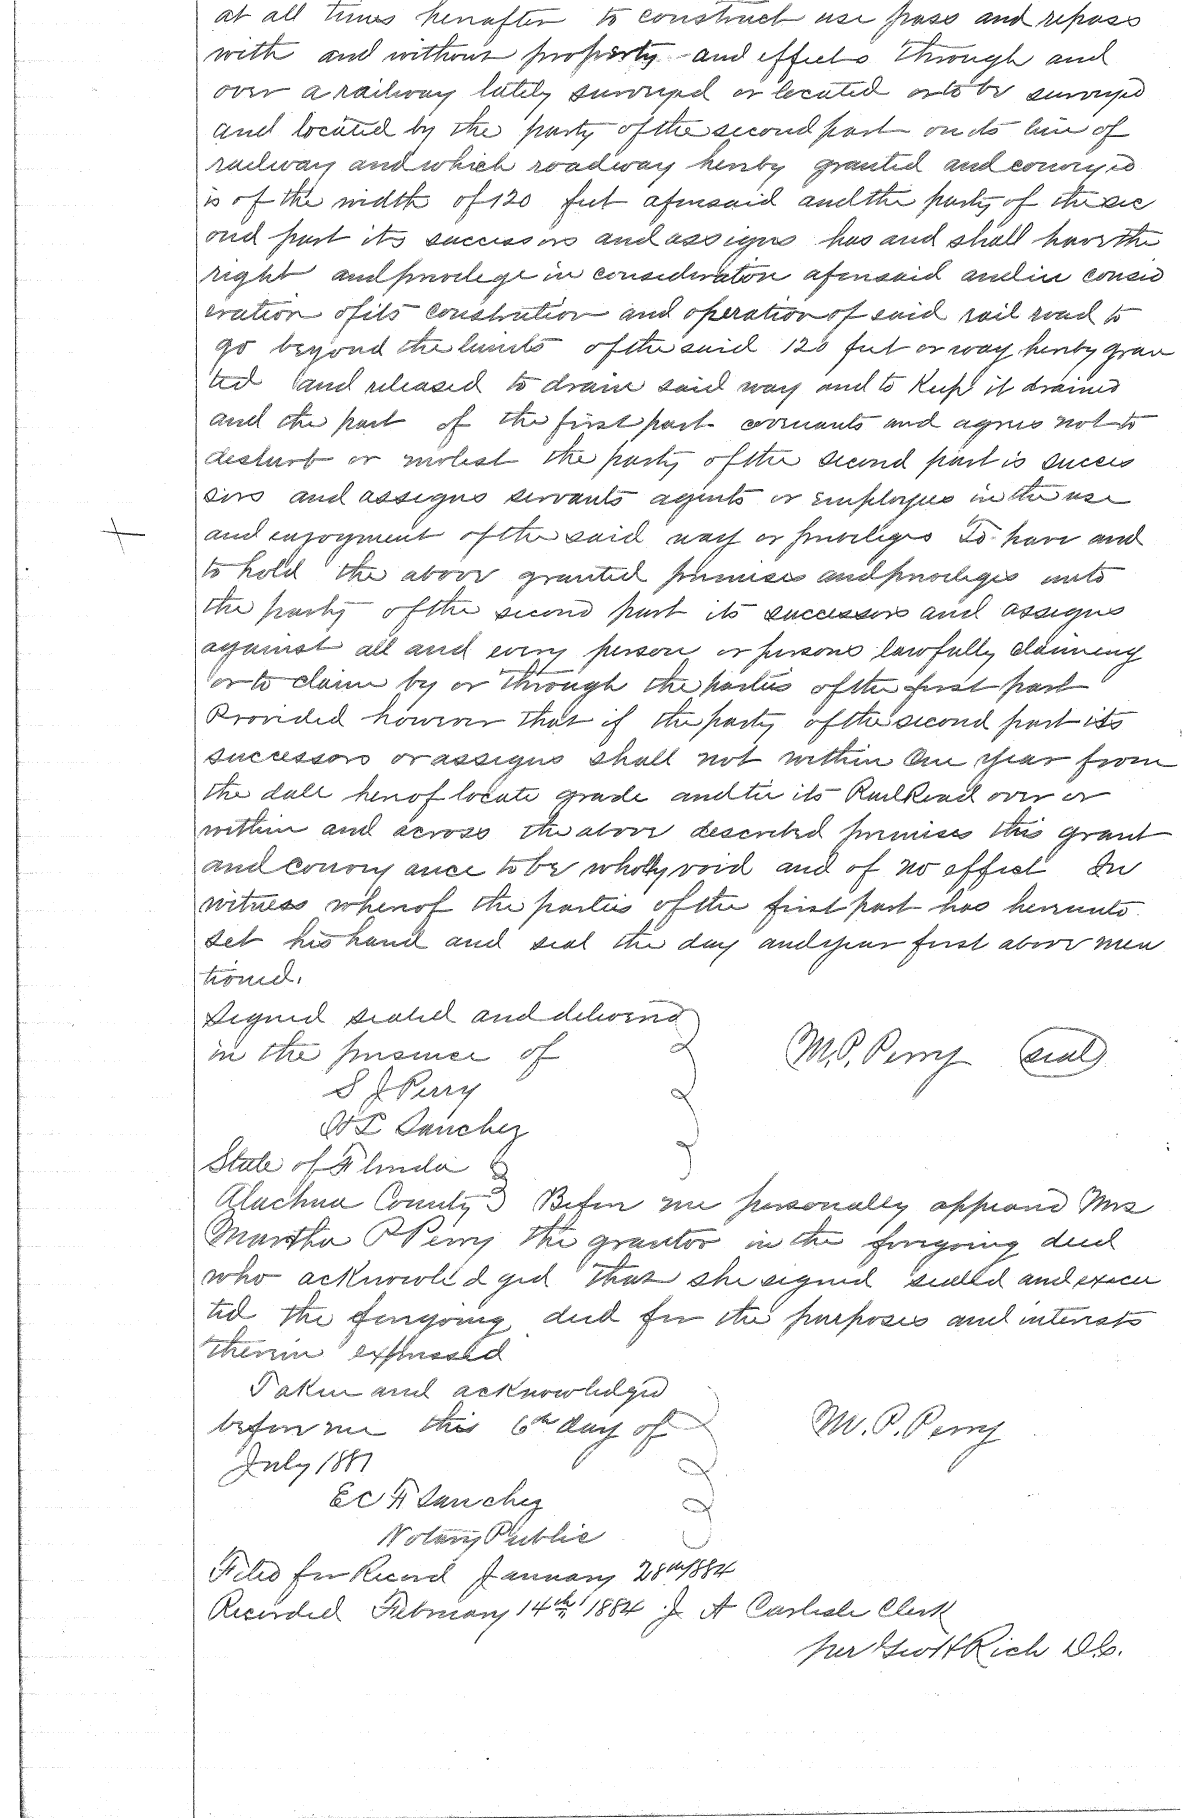 at all times hereafter to construct use pass and repass
with and without property and effects through and
over a railway lately surveyed or located or to be surveyed
and located by the party of the second part on its line of
railway and which roadway hereby granted and conveyed
is of the width of 120 feet aforesaid and the party of the sec
ond part its successors and assigns has and shall have the
right and privilege in consideration aforesaid and in consid
eration of its constrution and operation of said rail road to
go beyond the limits of the said 120 feet or way hereby gran
ted and released to drain said way and to Keep it drained
and the part of the first part covenants and agrees not to
disturb or molest the party of the second part is succes
sors and assigns servants agents or employees in the use
and enjoyment of the said way or privileges To have and
to hold the above granted premises and privileges unto
the party of the second part its successors and assigns
against all and every person or persons lawfully claiming
or to claim by or through the parties of the first part
Provided however that if the party of the second part its
successors or assigns shall not within One year from
the date hereof locate grade and tie its RailRoad over or
within and across the above described premises this grant
and convey ance to be wholly void and of no effect In
witness whereof the parties of the first part has hereunto
set his hand and seal the day and year first above men
tioned.
Signed sealed and delivered
in the presence of M.P. Perry seal
S J Perry
H L Sanchez
State of Florida
Alachua County Before me personally appeared Mrs
Martha P Perry the grantor in the foregoing deed
who acknowledged that she signed sealed and execu
ted the foregoing deed for the purposes and interests
therein expressed
Taken and acknowledged
before me this 6th day of M. P. Perry
July 1881
E C F Sanchez
Notary Public
Filed for Record January 28th 1884
Recorded February 14th 1884 J A Carlisle Clerk
per Geo H Rich D.C.